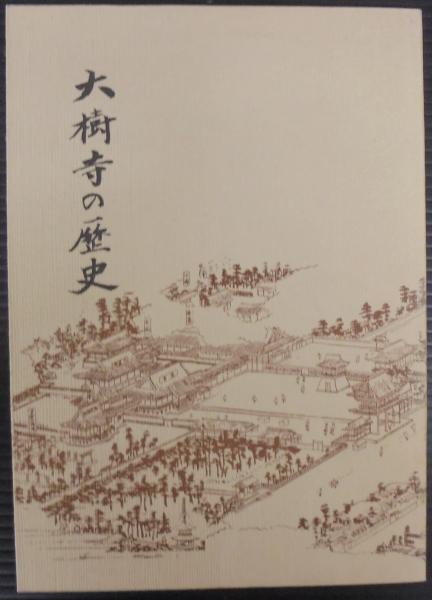 大樹寺の歴史